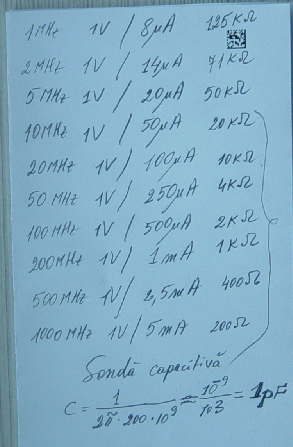 1MHz 1V / 8µA 125KΩ
2MHz 1V / 14µA 71KΩ
5MHz 1V / 20µA 50KΩ
10MHz 1V / 50µA 20KΩ
20MHz 1V / 100µA 10KΩ
50MHz 1V / 250µA 4KΩ
100MHz 1V / 500µA 2KΩ
200MHz 1V / 1mA 1KΩ
500MHz 1V / 2,5mA 400Ω
1000MHz 1V / 5mA 200Ω
Sondă capacitivă
C = 1 / 2π · 200 · 10⁹ ≈ 10⁻⁹ / 103 = 1pF